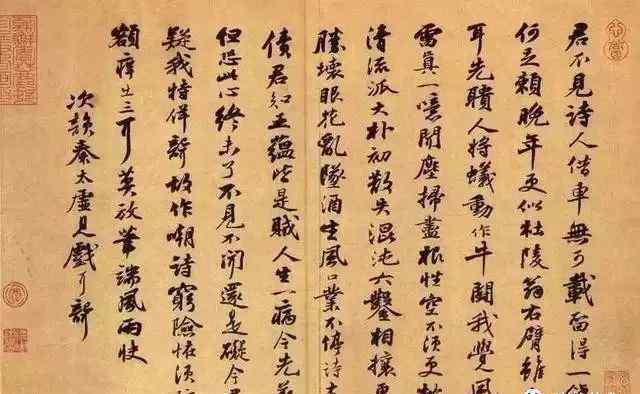 君不見詩人借車無可載留得一錢
何足賴晚年更似杜陵翁右臂雖
耳先聵人將蟻動作牛鬭我覺風
雷真一噫聞塵掃盡根性空不須更枕
清流派大朴初散失混沌六鑿相攘更
勝壞眼花亂墜酒生風口業不停詩有
債君知五蘊皆是賊人生一病今先差
但恐此心終未了不見不聞還是礙今君
疑我特佯聾故作嘲詩窮險怪須防
額癢出三耳莫放筆端風雨快
次韻秦太虛見戲耳聾